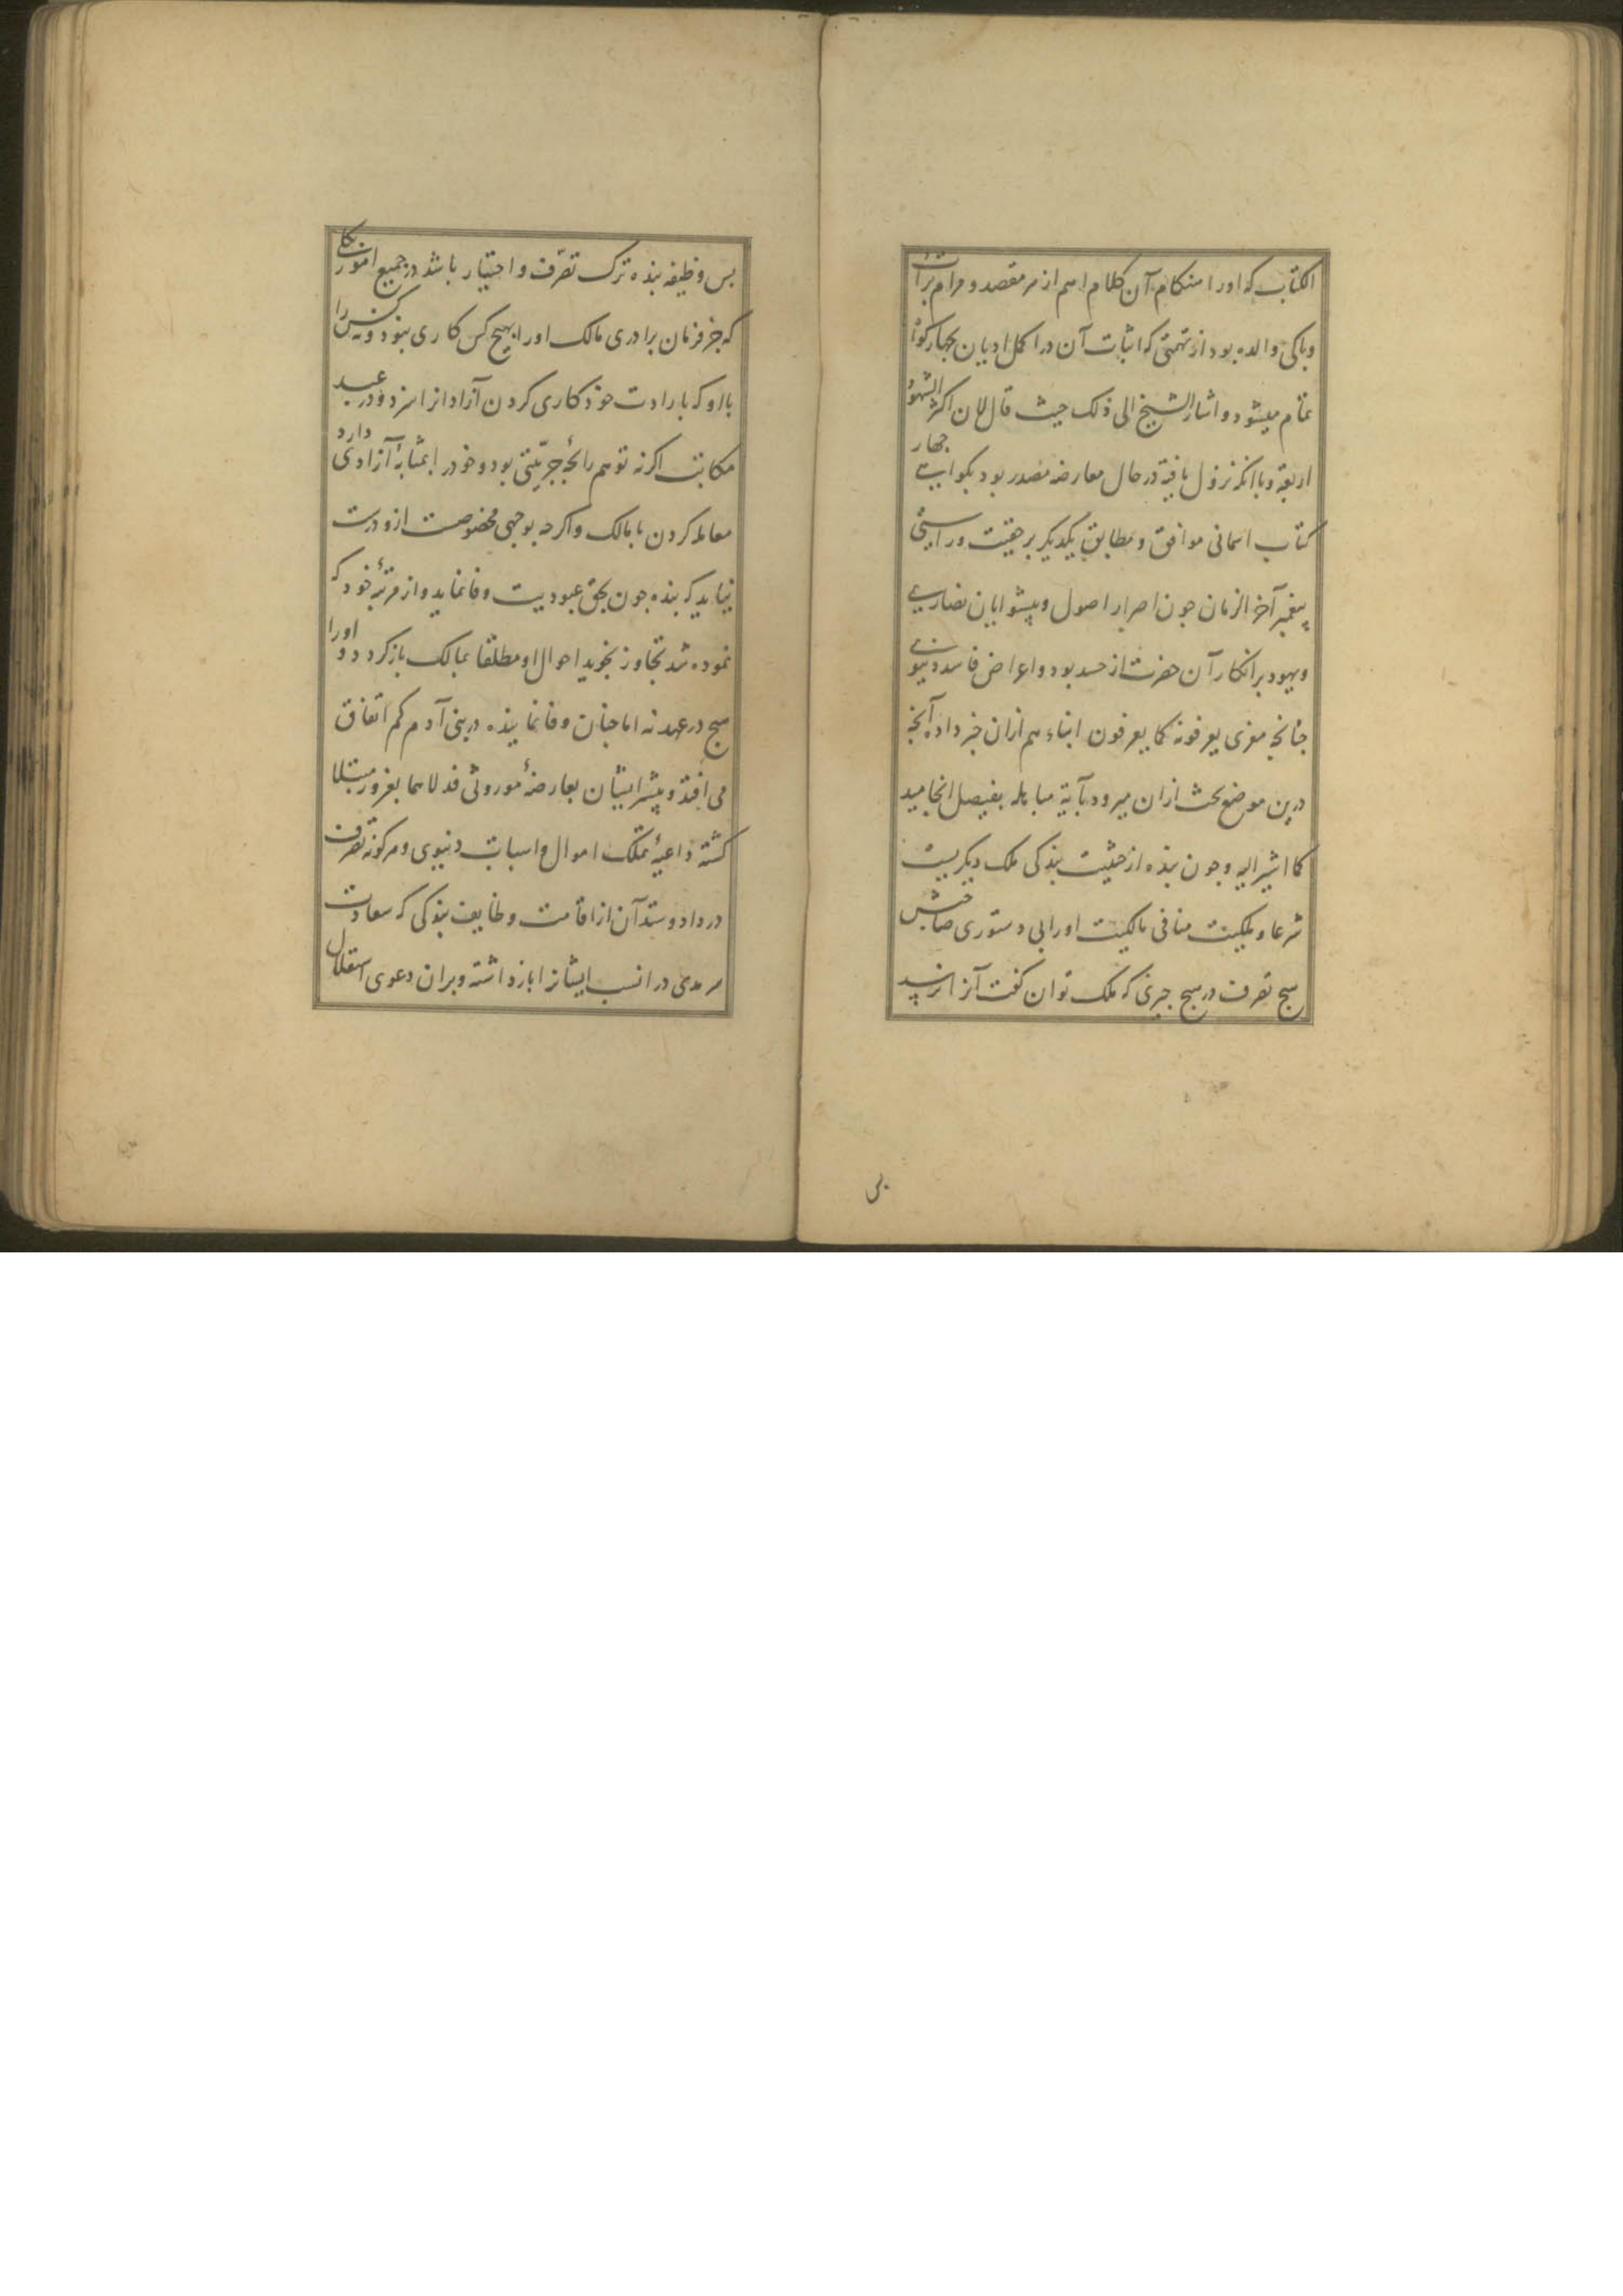 الکتاب که اورا هنکام آن کلام اهم از هر مقصد و مرام برائت
وپاکی والده بود از تهمتی که اثبات آن در اکمل ادیان بچهار کواه
تمام میشود و اشار الشیخ الی ذلک حیث قال لان اکثر الشهود
اربعة و با انکه نزول یافته در حال معارضه مصدر بود بکواهی چهار
کتاب اسمانی موافق و مطابق یکدیکر بر حقیت و راستی
پیغمبر آخر الزمان جون اصرار اصول و پیشوایان نصاری
ویهود بر انکار آن حضرت از حسد بود و اعراض فاسده دنیوی
جنانجه مغزی یعرفونه کما یعرفون ابناءهم ازان خبر داده آنجه
درین موضع بحث ازان میرود بآیة مباهله بفیصل انجامید
کما اشیر الیه و جون بنده از حیثیت بندکی ملک دیکریست
شرعا و ملکیت منافی مالکیت اورا بی دستوری صاحبش
هیچ تصرف در هیچ جیزی که ملک توان کفت آنرا نرسد
بس
بس وظیفه بنده ترک تصرّف و اختیار باشد در جمیع امور یکی
که جز فرمان برادری مالک اورا بهیج کس کاری نبود و نه کس را
با او که بارادت خود کاری کردن آزادانرا سزد و در عبد
مکاتب اکرنه توهم رائحۀ حرّیتی بود و خودرا بمثابۀ آزادی دارد
معامله کردن با مالک و اکرجه بوجهی مخصوصست ازو درست
نیاید که بنده جون بحق عبودیت وفا نماید و از مرتبۀ خود که
نموده شد تجاوز نجوید احوال او مطلقا بمالک باز کردد و اورا
هیج در عهد نه اما جنان وفا نماینده در بنی آدم کم اتفاق
می افتد و بیشتر ایشان بعارضۀ موروثی فدلاهما بغرور مبتلا
کشته داعیۀ تملک اموال و اسباب دنیوی و هرکونه تصرف
در داد و ستد آن از اقامت وظایف بندکی که سعادت
سرمدی در انست ایشانرا باز داشته و بران دعوی استقلال